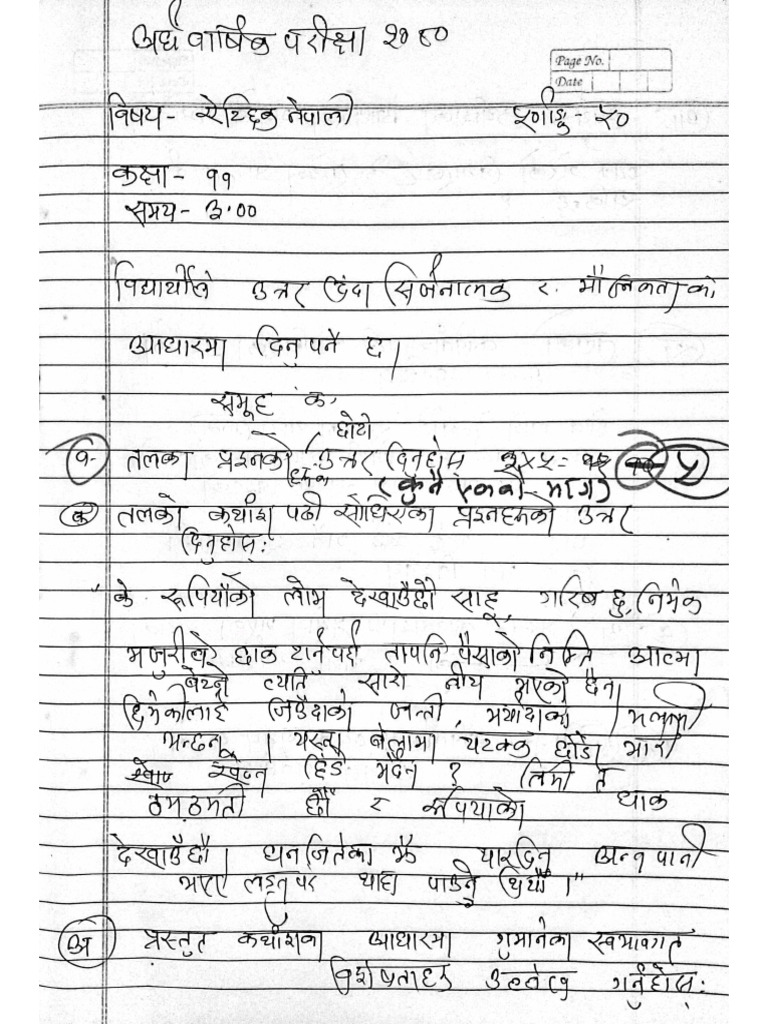 अर्ध वार्षिक परीक्षा २०८०
Page No.
Date
विषय- ऐच्छिक नेपाली पूर्णाङ्क ५०
कक्षा- ११
समय- ३.००
विद्यार्थीले उत्तर दिंदा सिर्जनात्मक र मौलिकताको
आधारमा दिनुपर्ने छ।
समूह क
छोटो
१. तलका प्रश्नको उत्तर दिनुहोस् ५
हरूको
(कुनै एकको मात्र)
क तलको कथांश पढी सोधिएका प्रश्नहरूको उत्तर
दिनुहोस्:
"के रूपियाँको लोभ देखाउँछौ साहू, गरिब छु, निमेक
मजुरी गरेर छाक टार्नुपर्छ तापनि पैसाको निम्ति आत्मा
बेच्ने त्यति सारो नीच भएको छैन।
छिमेकीलाई जिउँदाको जन्ती, मर्यादाको मलामी
भन्छन्। यस्ता बेलामा चटक्क छोडी भारी
खोज्न हिंडे भयो ? तिमी त
ठम्ठम्ती छौ र रूपियाको धाक
देखाउँछौ। धनजितेका झैँ चारदिन अन्न पानी
भएर लड्नु परे थाहा पाउने थियौ।"
अ प्रस्तुत कथांशका आधारमा गुमानेका स्वभावगत
विशेषताहरू उल्लेख गर्नुहोस्: